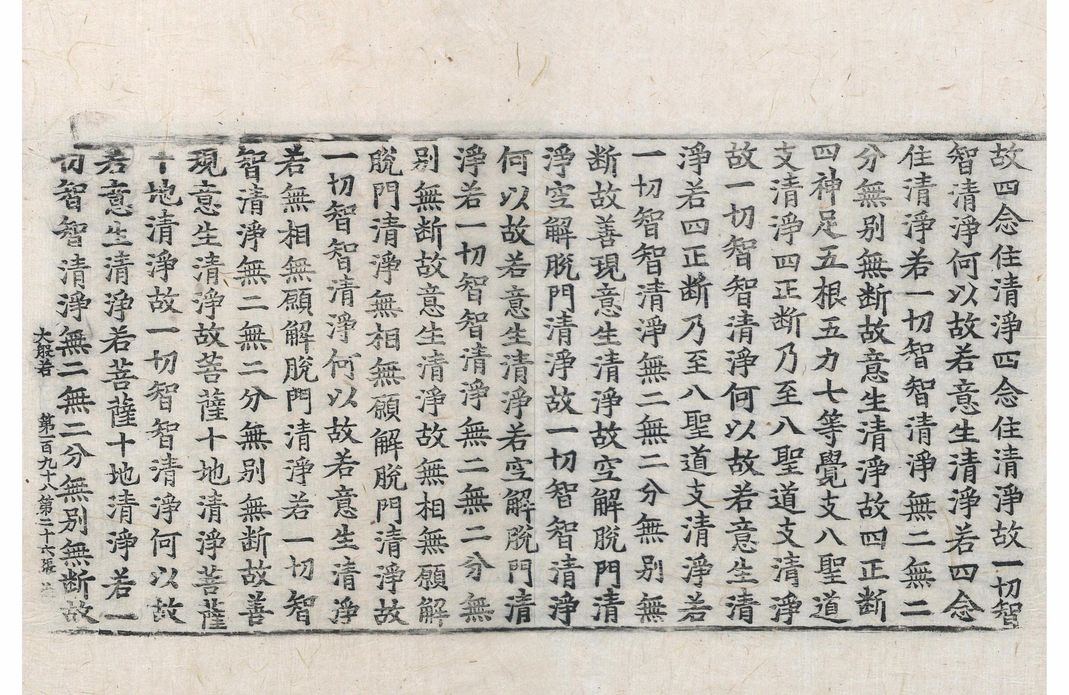 故四念住清淨四念住清淨故一切智
智清淨何以故若意生清淨若四念
住清淨若一切智智清淨無二無二
分無别無断故意生清淨故四正断
四神足五根五力七等覺支八聖道
支清淨四正断乃至八聖道支清淨
故一切智智清淨何以故若意生清
淨若四正断乃至八聖道支清淨若
一切智智清淨無二無二分無别無
断故善現意生清淨故空解脫門清
淨空解脫門清淨故一切智智清淨
何以故若意生清淨若空解脫門清
淨若一切智智清淨無二無二分無
别無断故意生清淨故無相無願解
脫門清淨無相無願解脫門清淨故
一切智智清淨何以故若意生清淨
若無相無願解脫門清淨若一切智
智清淨無二無二分無别無断故善
現意生清淨故菩薩十地清淨菩薩
十地清淨故一切智智清淨何以故
若意生清淨若菩薩十地清淨若一
切智智清淨無二無二分無别無断故
大般若 第一百九十八 第二十六張